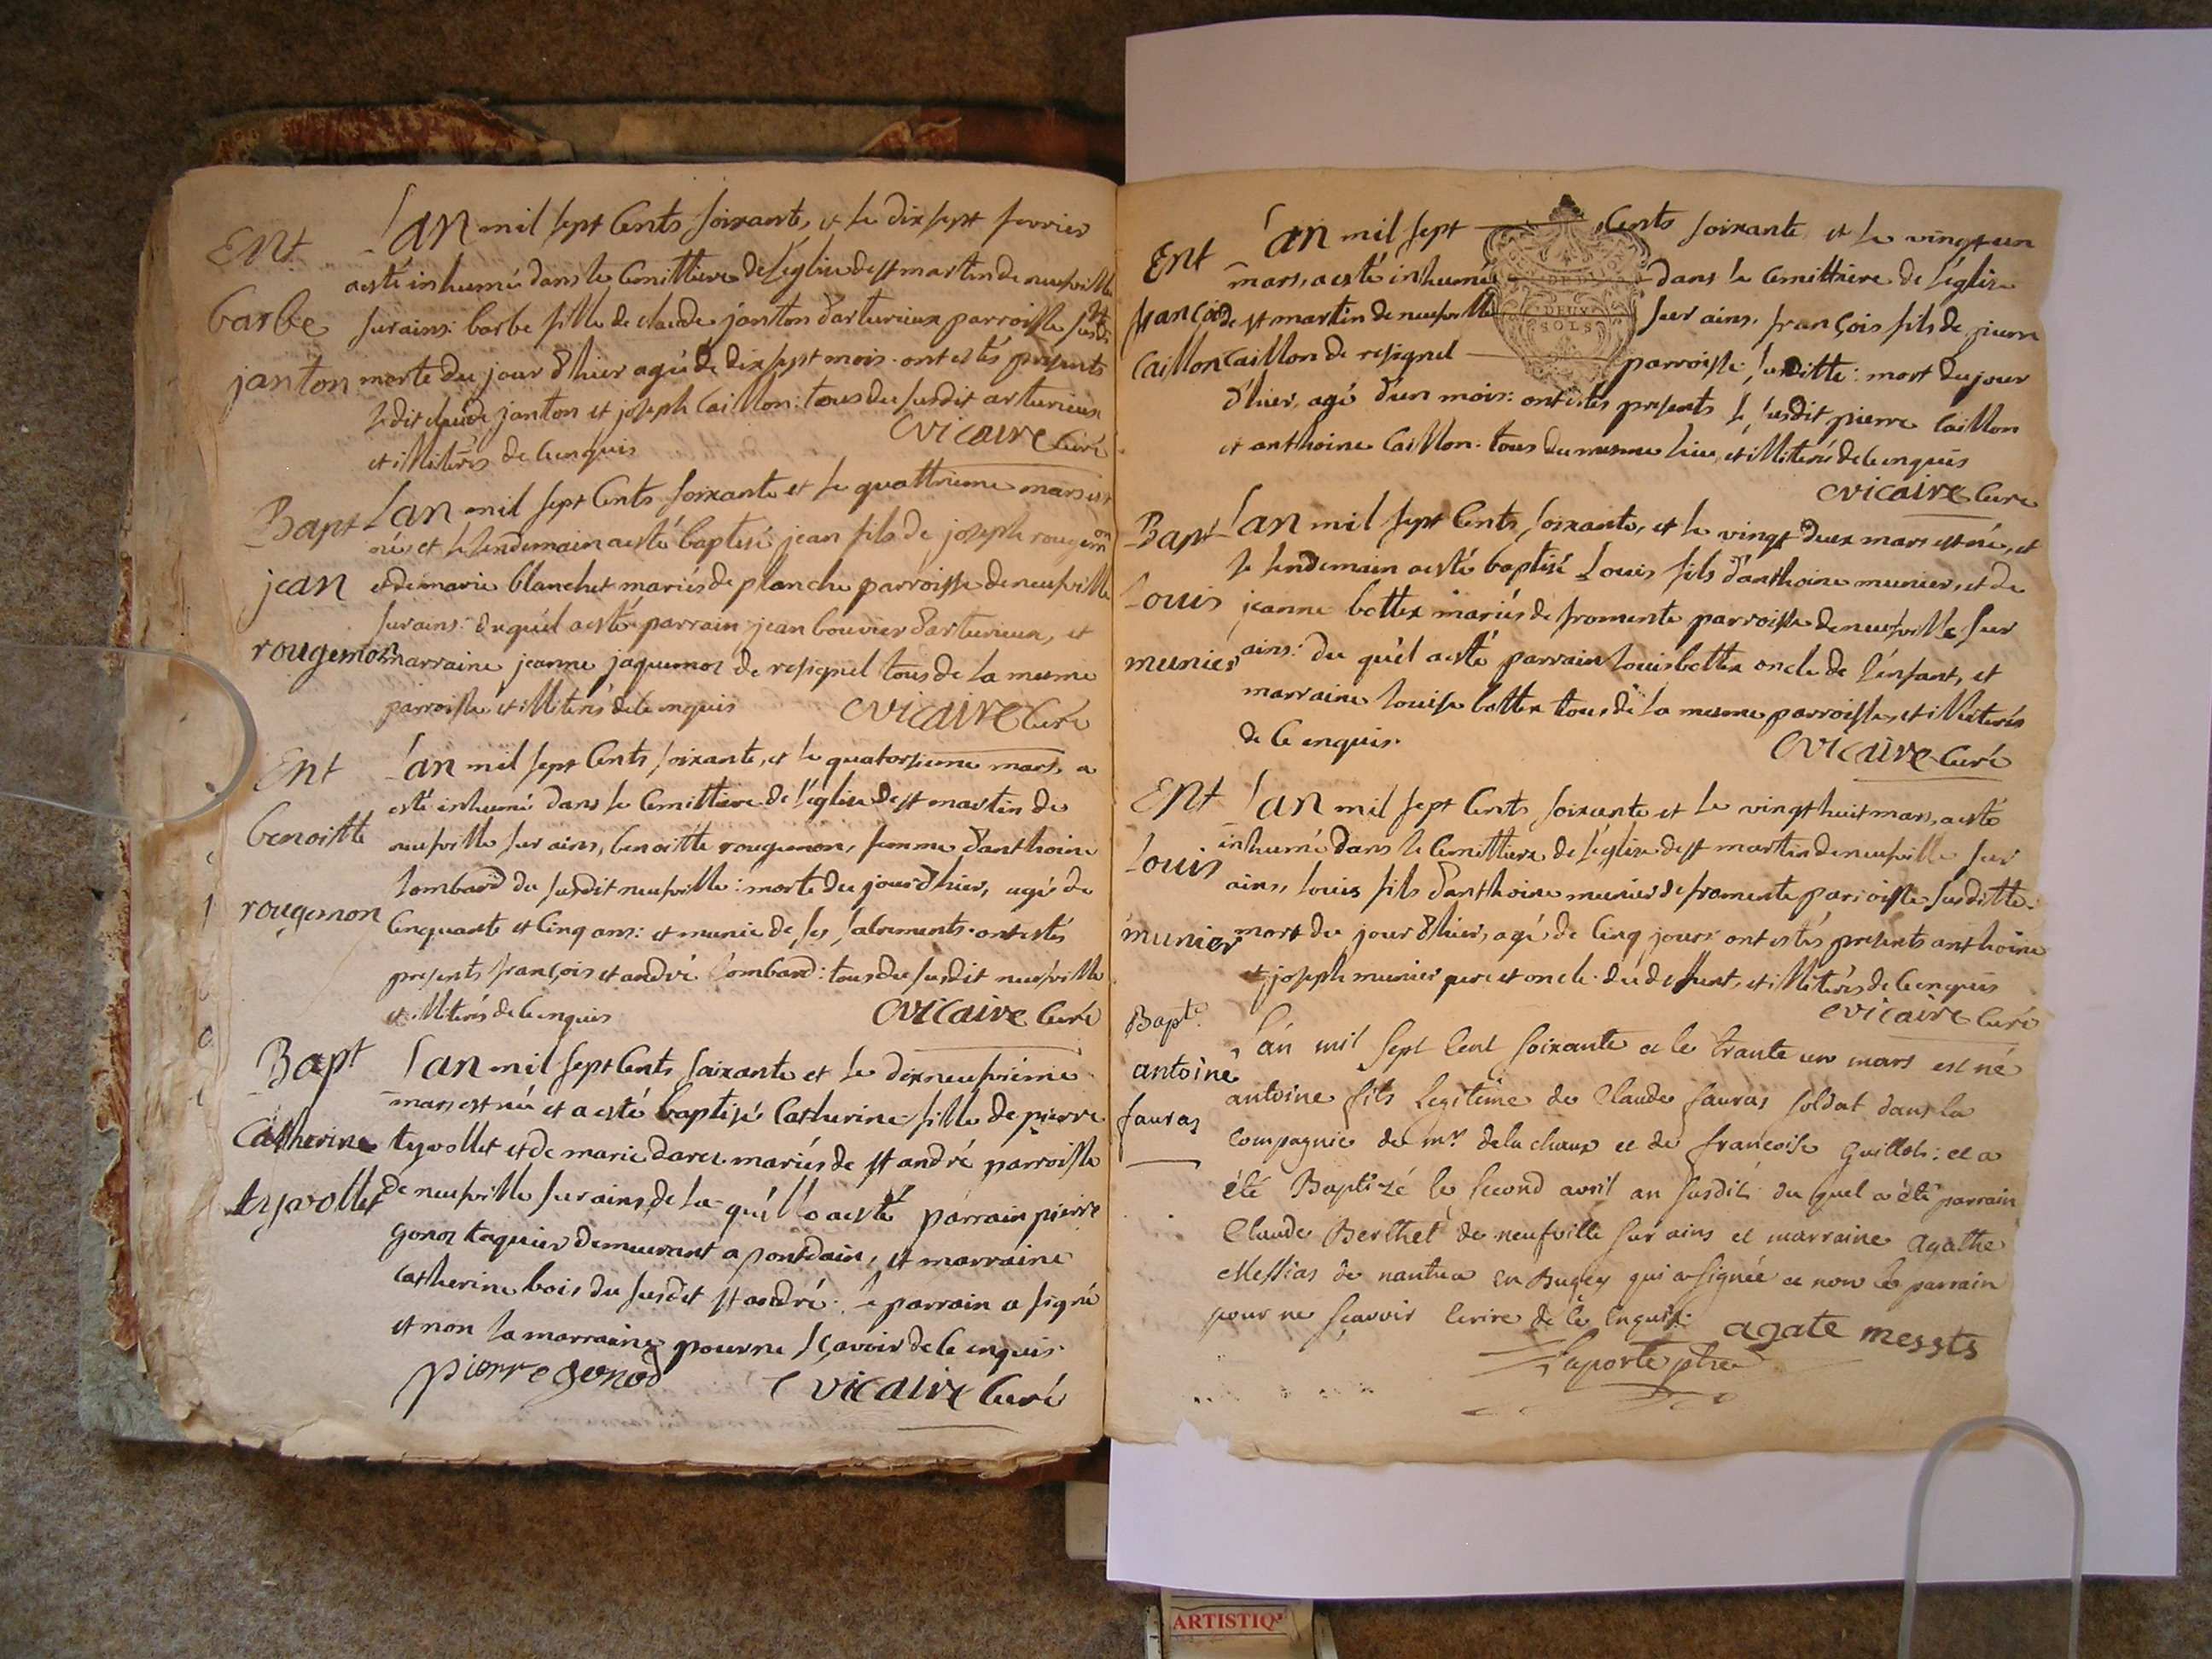 Ent
barbe
janton
L'an mil sept cents soixante, et le dix sept fevrier
a esté inhumé dans le cemittiere de l'église de st martin de neufville
sur ains: barbe fille de claude janton d'arturieux parroisse susdte
morte du jour d'hier agé de dix sept mois. ont estés presents
le dit claude janton et joseph caillon: tous du susdit arturieux
et illiterés de ce enquis
Cvicaire Curé
Bapt
jean
rougemon
L'an mil sept cents soixante et le quattrieme mars est
né, et le lendemain a esté baptisé jean fils de joseph rougemon
et de marie blanchet mariés de planche parroisse de neufville
sur ains: du quél a esté parrain jean bouvier d'arturieux, et
marraine jeanne jaquemot de resignel tous de la mesme
parroisse et illiterés de ce enquis
Cvicaire Curé
Ent
benoitte
rougemon
L'an mil sept cents soixante, et le quatorsieme mars, a
esté inhumé dans le cemittiere de l'église de st martin de
neufville sur ains, benoitte rougemon, femme d'anthoine
lombard du susdit neufville: morte du jour d'hier, agé de
cinquante et cinq ans: et munie de ses sacrements. ont estés
presents françois et andré lombard: tous du susdit neufville
et illiterés de ce enquis
Cvicaire Curé
Bapt
Catherine
teyvollet
L'an mil sept cents soixante et le dixneufvieme
mars est née et a esté baptisé Catherine fille de pierre
teyvollet et de marie darex mariés de st andré parroisse
de neufville sur ains, de la quélle a esté parrain pierre
gonot laquier demeurant a pont dain, et marraine
catherine bois du susdit st andré: le parrain a signé
et non la marraine pour ne sçavoir de ce enquis.
pierre gonod
Cvicaire Curé
Ent
françois
Caillon
L'an mil sept cents soixante et le vingt un
mars, a esté inhumé dans le cemittiere de l'église
de st martin de neufville sur ains, françois fils de pierre
Caillon de resignel parroisse susditte: mort du jour
d'hier, agé d'un mois: ont estés presents le susdit pierre Caillon
et anthoine Caillon. tous du mesme lieu, et illiterés de ce enquis
Cvicaire Curé
DEUX
SOLS
Bapt
Louis
munier
L'an mil sept cents soixante, et le vingt deux mars est né, et
le lendemain a esté baptisé Louis fils d'anthoine munier, et de
jeanne bottex mariés de fromente parroisse de neufville sur
ains: du quél a esté parrain Louis bottex oncle de l'enfant, et
marraine Louise bottex tous de la mesme parroisse, et illiterés
de ce enquis.
Cvicaire Curé
Ent
Louis
munier
L'an mil sept cents soixante et le vingt huit mars, a esté
inhumé dans le cemittiere de l'église de st martin de neufville sur
ains, Louis fils d'anthoine munier de fromente parroisse susditte.
mort du jour d'hier, agé de cinq jours: ont estés presents anthoine
et joseph munier pere et oncle du deffunt, et illiterés de ce enquis
Cvicaire Curé
Bapte
antoine
fauras
L'an mil sept cent soixante et le trante un mars est né
antoine fils legitime de Claude fauras soldat dans la
compagnie de mr delachaux et de francoise Guillot: et a
été Baptizé le second avril an susdit du quel a été parrain
Claude Berthet de neufville sur ains et marraine Agathe
Messias de nantua en Bugey qui a signée et non le parrain
pour ne sçavoir écrire de ce enquis:
agate messis
Laporte ptre
ARTISTIQ